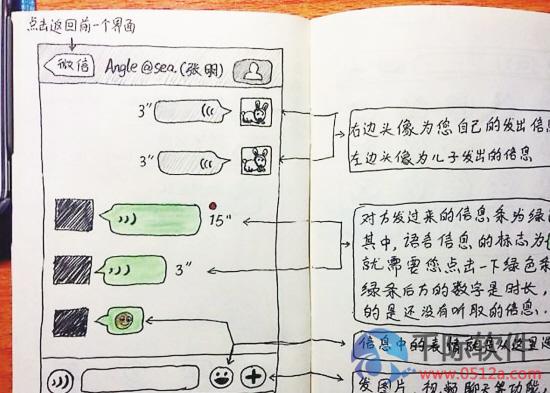 点击返回前一个界面
微信
Angle@sea.(张明)
3"
右边头像为您自己的发出信息
3"
左边头像为儿子发出的信息
15"
对方发过来的信息条为绿
其中,语音信息的标志为
3"
就需要您点击一下绿色条
绿条后方的数字是时长,
的是还没有听取的信息.
信息中的表情就是从这里
发图片,视频聊天等功能,
千际软件
www.0512a.com